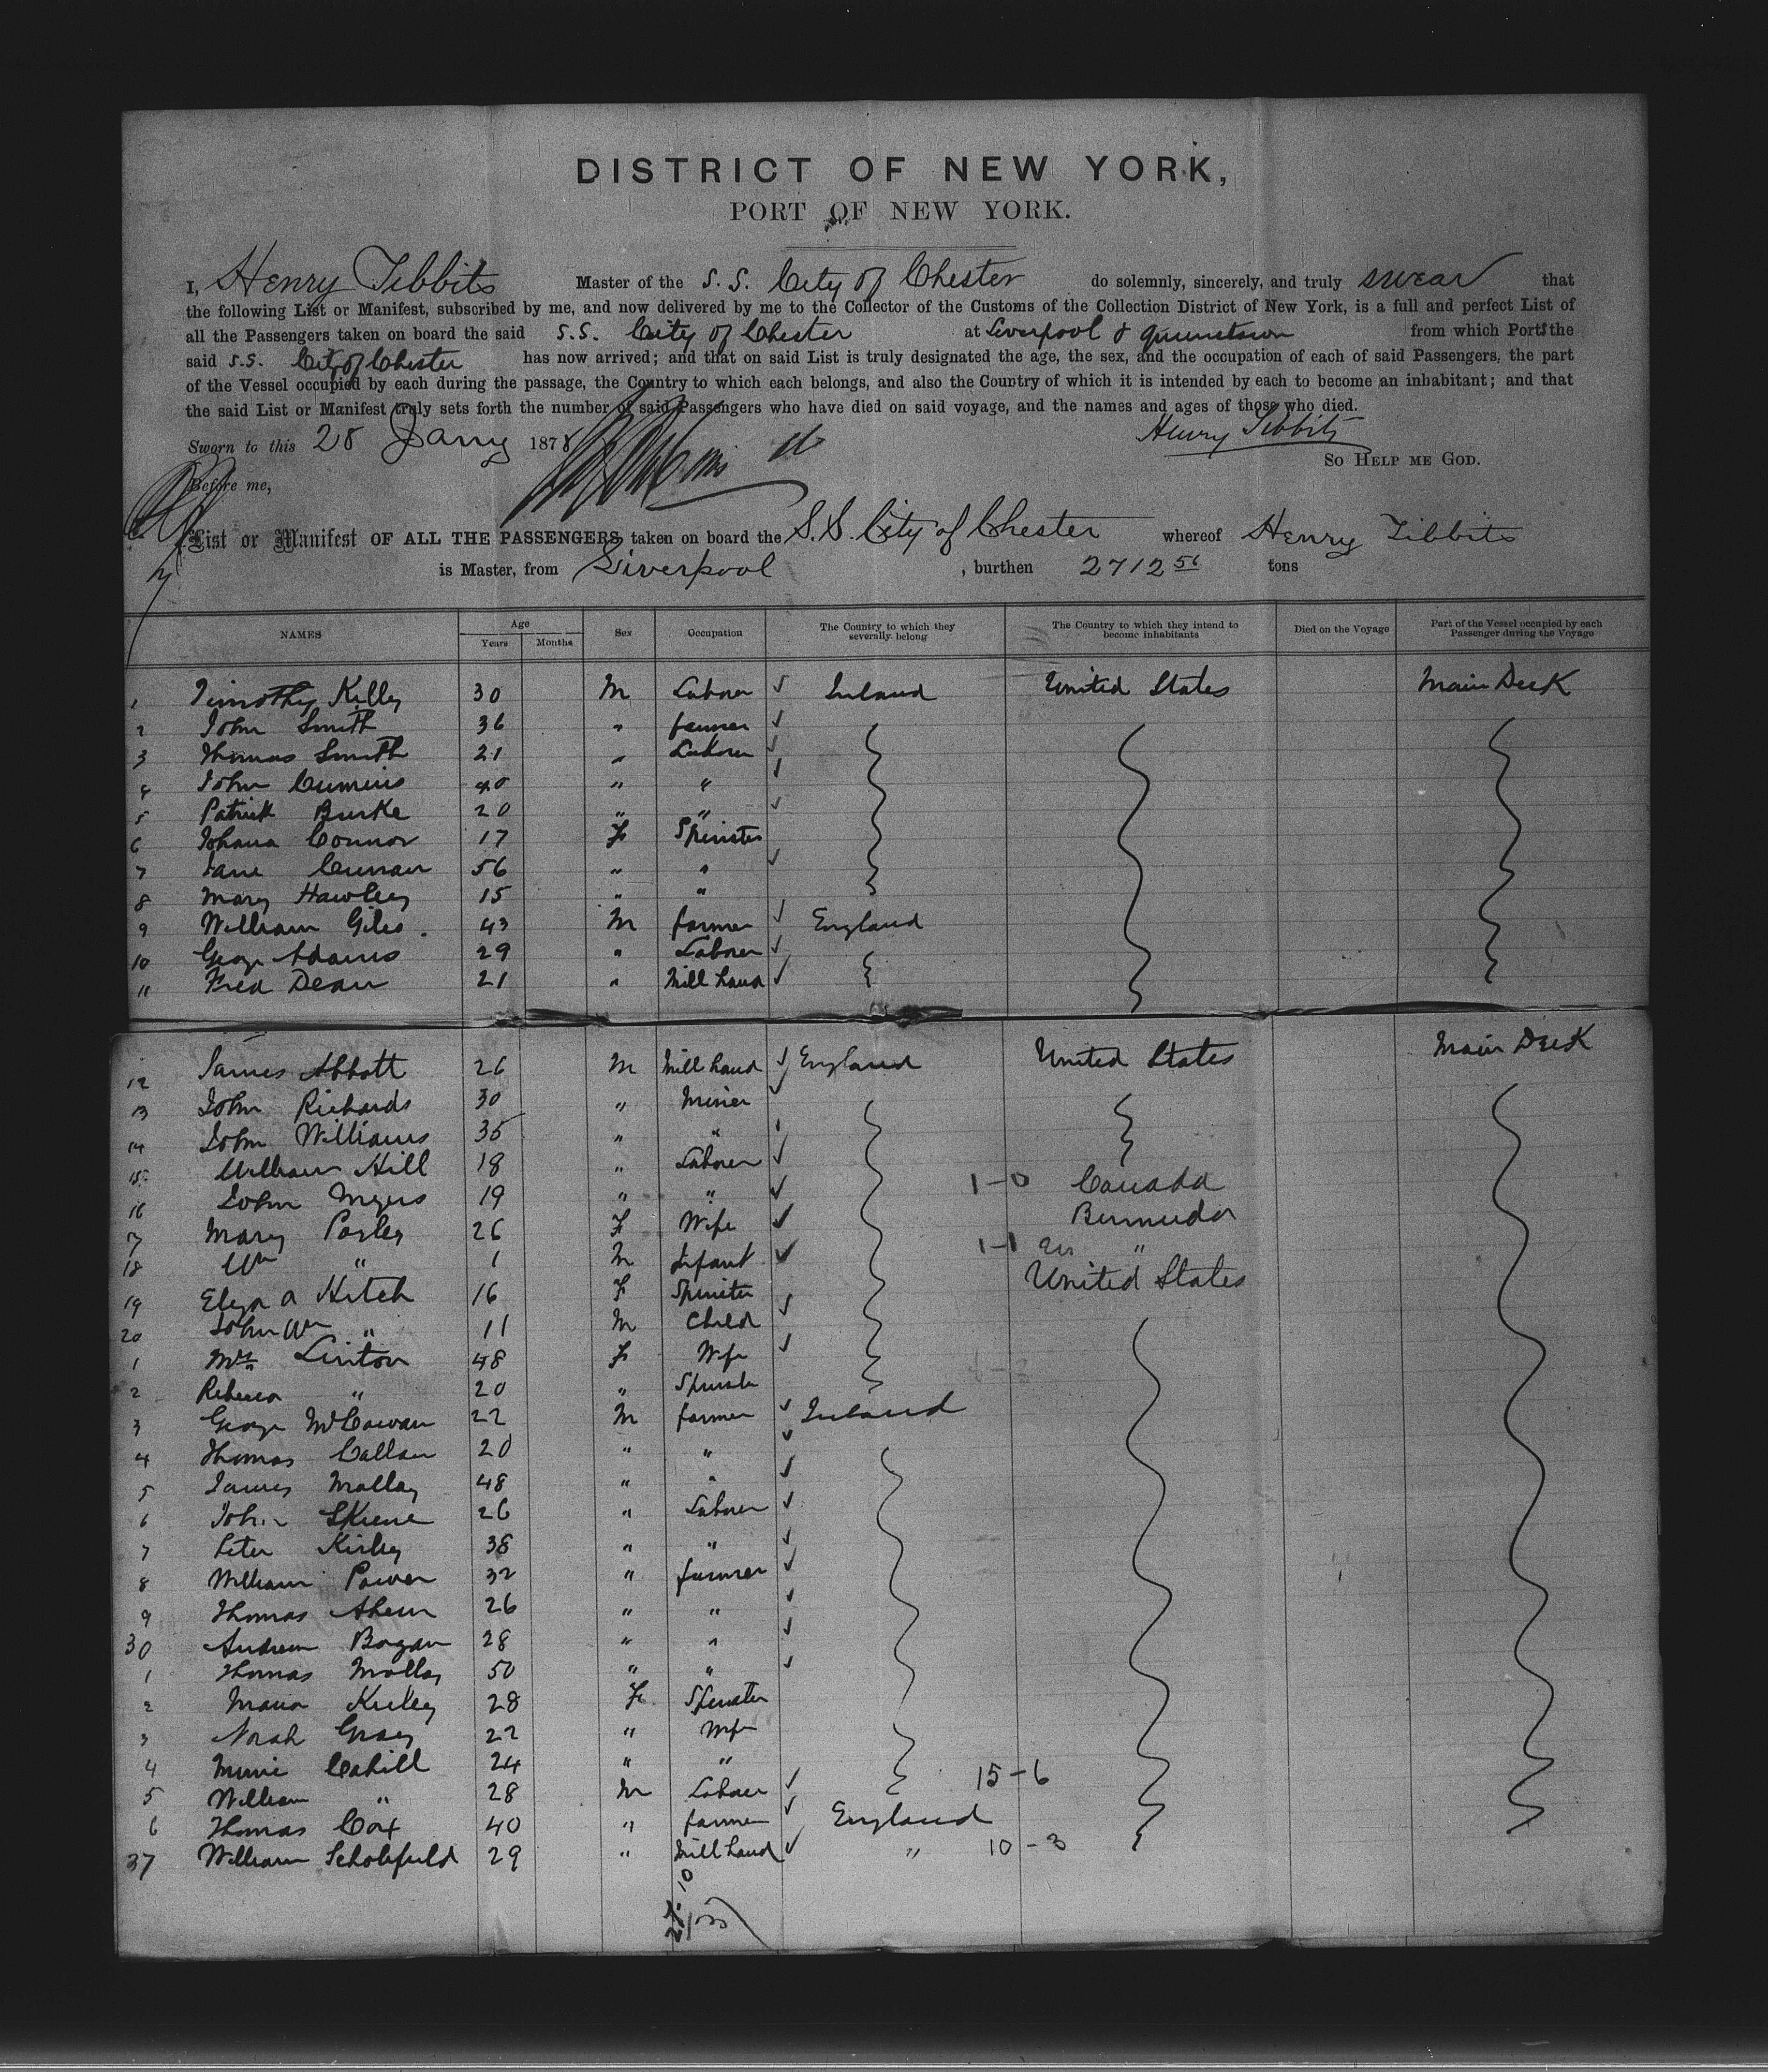 DISTRICT OF NEW YORK,
PORT OF NEW YORK.
I, Henry Tibbits Master of the S. S. City of Chester do solemnly, sincerely, and truly swear that
the following List or Manifest, subscribed by me, and now delivered by me to the Collector of the Customs of the Collection District of New York, is a full and perfect List of
all the Passengers taken on board the said S.S. City of Chester at Liverpool & Queenstown from which Ports the
said S.S. City of Chester has now arrived; and that on said List is truly designated the age, the sex, and the occupation of each of said Passengers, the part
of the Vessel occupied by each during the passage, the Country to which each belongs, and also the Country of which it is intended by each to become an inhabitant; and that
the said List or Manifest truly sets forth the number of said Passengers who have died on said voyage, and the names and ages of those who died.
Henry Tibbits
Sworn to this 28 Jany 1878
So Help me God.
Before me,
List or Manifest OF ALL THE PASSENGERS taken on board the S.S. City of Chester whereof Henry Tibbits
is Master, from Liverpool , burthen 2712 56 tons
NAMES Age Years Months Sex Occupation The Country to which they severally belong The Country to which they intend to become inhabitants Died on the Voyage Part of the Vessel occupied by each Passenger during the Voyage
1 Timothy Kelley 30 M Laborer Ireland United States Main Deck
2 John Smith 36 " farmer
3 Thomas Smith 21 " Laborer
4 John Cumins 40 " "
5 Patrick Burke 20 " "
6 Johana Connor 17 F Spinster
7 Jane Curran 56 " "
8 Mary Hawley 15 " "
9 William Giles 43 M farmer England
10 George Adams 29 " Laborer
11 Fred Dean 21 " Mill hand
12 James Abbott 26 M Mill hand England United States Main Deck
13 John Richards 30 " Miner
14 John Williams 35 " "
15 William Hill 18 " Laborer
16 John Myers 19 " " 1-0 Canada
7 Mary 26 F Wife Bermuda
18 Wm " 1 M Infant 1-1 "
19 Eliza A Hitch 16 F Spinster United States
20 John Wm " 11 M Child
1 Mrs Linton 48 F Wife
2 Rebecca " 20 " Spinster
3 George McCowan 22 M farmer Ireland
4 Thomas Callan 20 " "
5 James Molloy 48 " "
6 John Skiene 26 " Laborer
7 Peter Kirby 38 " "
8 William Power 32 " farmer
9 Thomas Ahern 26 " "
30 Andrew Bogan 28 " "
1 Thomas Molloy 50 " "
2 Maria 28 F Spinster
3 Norah Gray 22 " Wife
4 Minie Cahill 24 " " 15-6
5 William " 28 M Laborer
6 Thomas Cox 40 " farmer England
37 William Scholefield 29 " Mill hand " 10-3